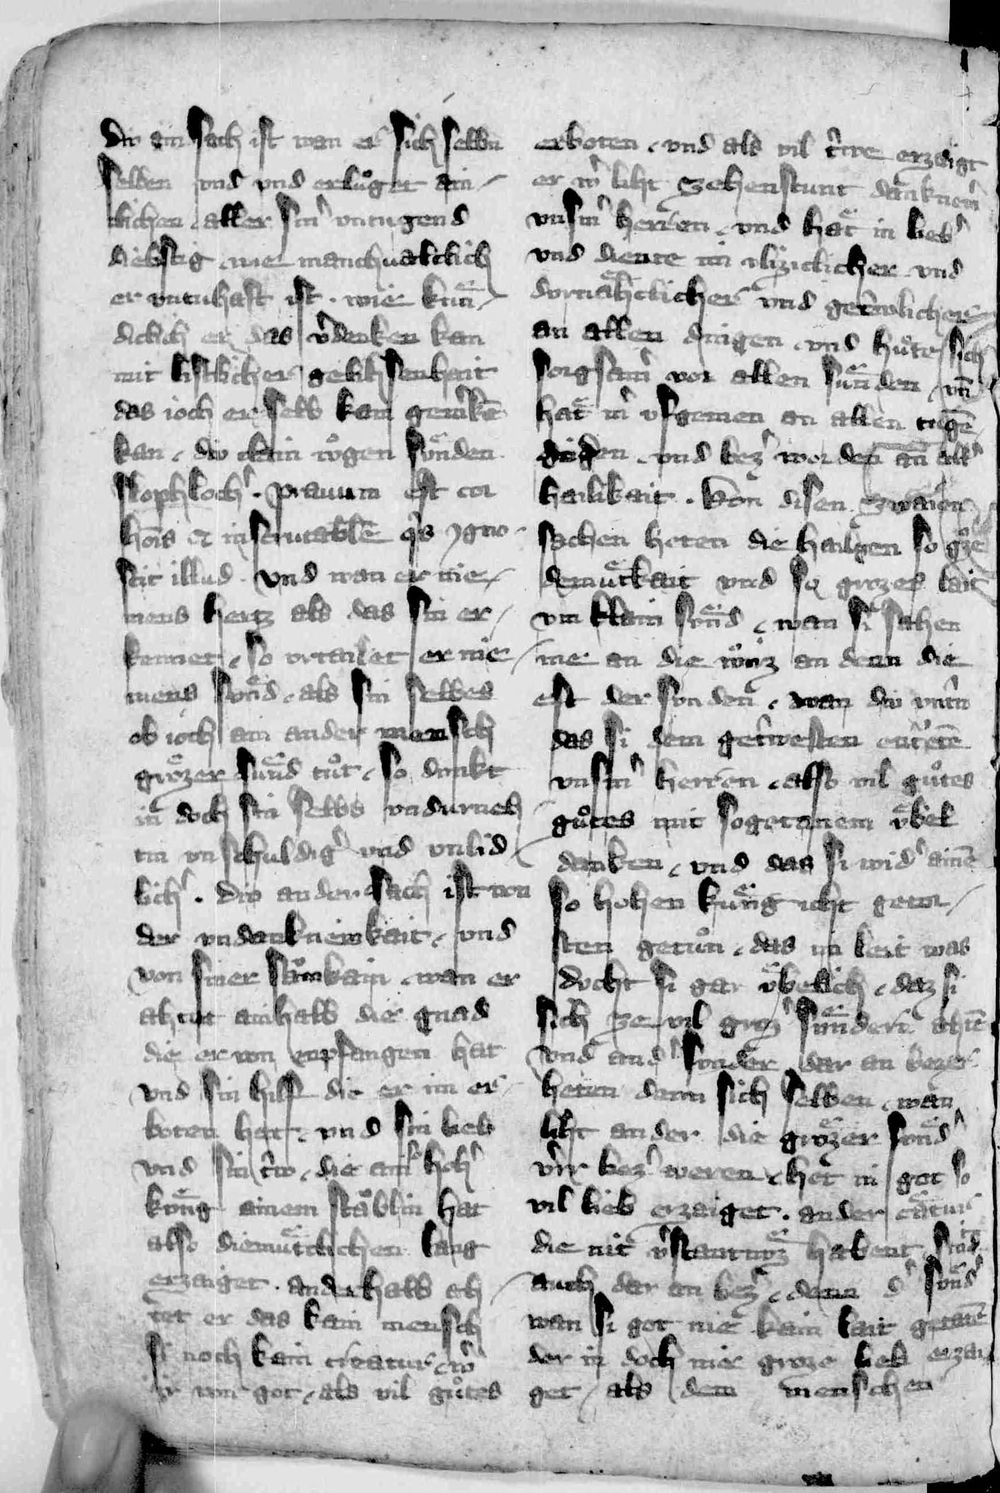 div ain sach ist wan er sich selbn
selben vnd vnd erluͦget ain
lichen aller sinˀ vntugend
diebstig wie manchualtclich
er vntuhaft ist. wie kuͤn
diclich er das v̾denken kan
mit listlicher gelihsenhait
das ioch er selb kain gemˀken
kan. div sin oͮgen suͤnden
slophlochˀ. Prauum est cor
hoīs et inscrutabile qis ꝯgno
scit illud. Vnd wan er nie
mens hertz als das sin er
kennet. so vrtailet er nie
mens suͤnd. als sin selbes
ob ioch ain ander mensch
groͤzer suͤnd tuͦt. so dunkt
in doch sin selbs vndurneh
tin vnschuldigˀ vnd vnlid
lichˀ. Div ander sach ist von
der vndanknemkait. vnd
von siner samkain. wan er
ahtot ainhalb die gnad
die er von enpfangen hat
vnd sin hilff die er im er
boten hat. vnd sin lieb
vnd sin triv. die ain hohˀ
kuͤng ainem staͤblin hat
also diemuͤtclichen lang
erzaiget. anderhalb ah
tet er das kain mensch
si noch kain creatur
vor von got. als vil guͦtes
erboten. vnd als vil trwe erzaigt
er wˀ liht zehenstunt danknemˀ
vnsmˀ herren. vnd hat in liebˀ
vnd diente im vlizclicher vnd
durnaͤhtclicher vnd getrwlicher
an allen dingen. vnd huͦte sich
sorgsamˀ vor allen suͤnden. vn̄
hat mˀ vfgenien an allen tugen
den. vnd bezˀ worden an allˀ
hailikait. Von disen zwain
sachen heten die hailgen so groͤze
demuͤtkait vnd so grozes lait
vm klain suͤnd. wan si sahen
me an die wuͤrz an denn die
est der sunden. wan div vntrw
das si dem getrwesten
vnsmˀ herren. also vil guͦtes
guͦtes mit sogetanem vͤbel
danken. vnd das si widˀ ainē
so hohen kuͤng icht getor
sten getuͦn. das im leit was
ducht si gar vͤbelich. daz si
sich ze vil grozˀ suͤndern ahten
vnd andˀ suͤnder dar an bezer
heten denn sich selben. wan
liht ander die groͤzer suͤndˀ
wˀ bezˀ weren. het in got so
vil lieb erzaiget. ander creatur
die nit v̾stantnuͤz habent sind
auch dar an bezˀ. denn dˀ suͤndˀ
wan si got nie kain lait getaten
der in doch nie groze lieb erzai
get. als dem menschen